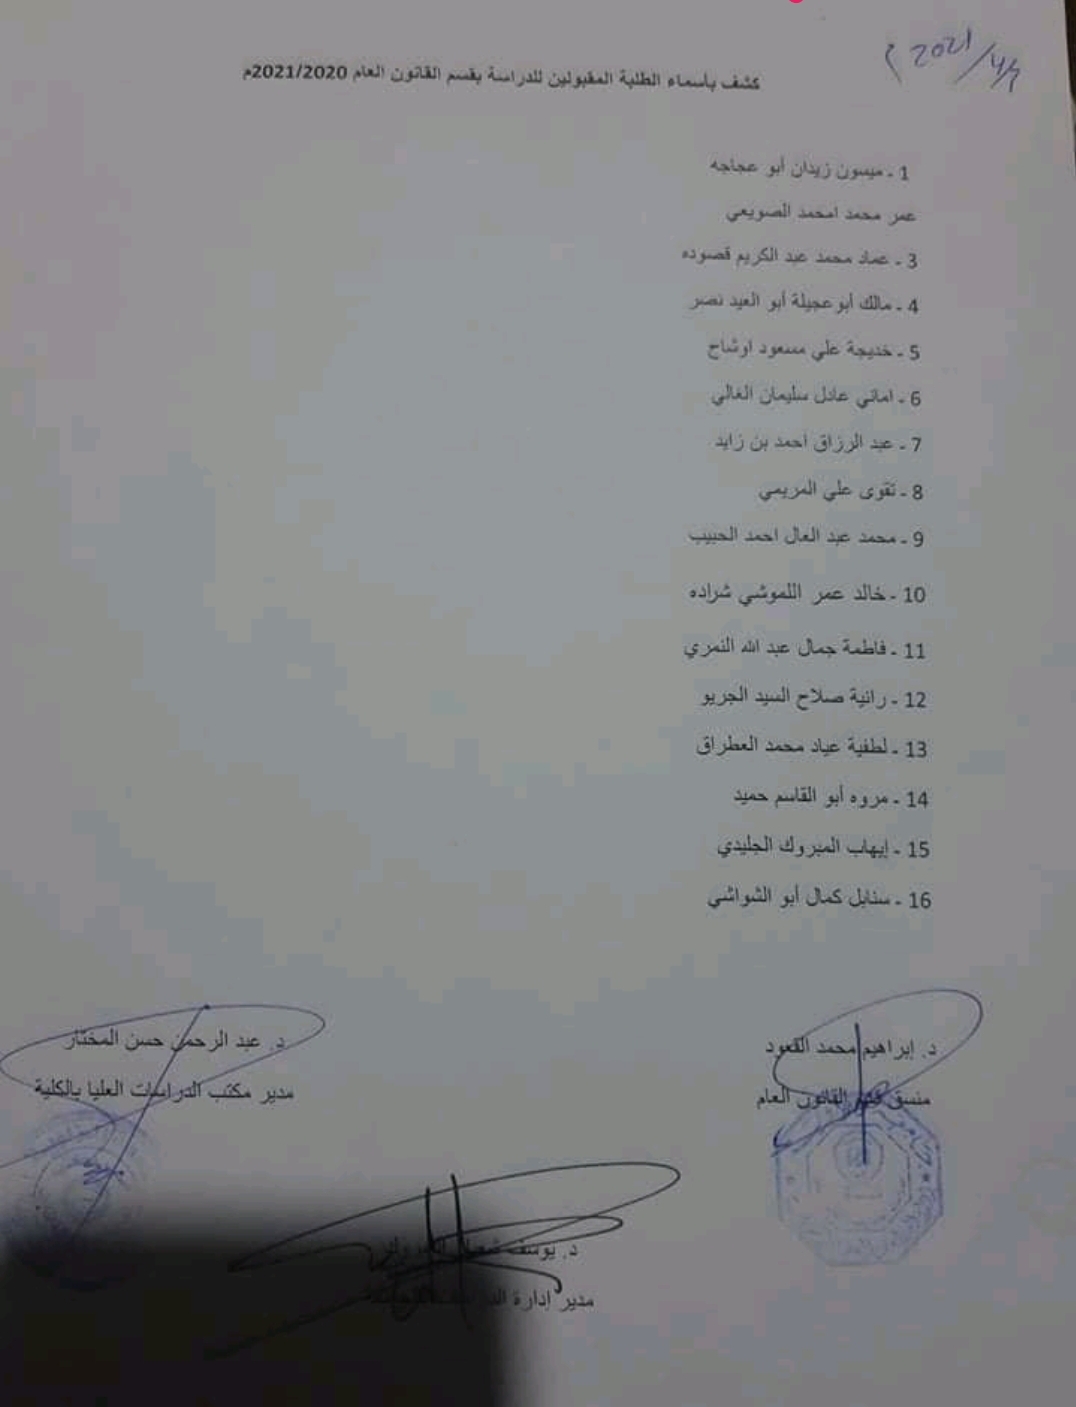 2021/4/7م
كشف بأسماء الطلبة المقبولين للدراسة بقسم القانون العام 2021/2020م
1 - ميسون زيدان أبو عجاجه
عمر محمد امحمد الصويعي
3 - عماد محمد عبد الكريم قصوده
4 - مالك أبوعجيلة أبو العيد نصر
5 - خديجة علي مسعود اوشاح
6 - اماني عادل سليمان الغالي
7 - عبد الرزاق احمد بن زايد
8 - تقوى علي المريمي
9 - محمد عبد العال احمد الحبيب
10 - خالد عمر اللموشي شراده
11 - فاطمة جمال عبد الله النمري
12 - رانية صلاح السيد الجريو
13 - لطفية عياد محمد العطراق
14 - مروه أبو القاسم حميد
15 - إيهاب المبروك الجليدي
16 - سنابل كمال أبو الشواشي
د. إبراهيم محمد القعود
منسق قسم القانون العام
د. عبد الرحمن حسن المختار
مدير مكتب الدراسات العليا بالكلية
د. يوسف
مدير إدارة